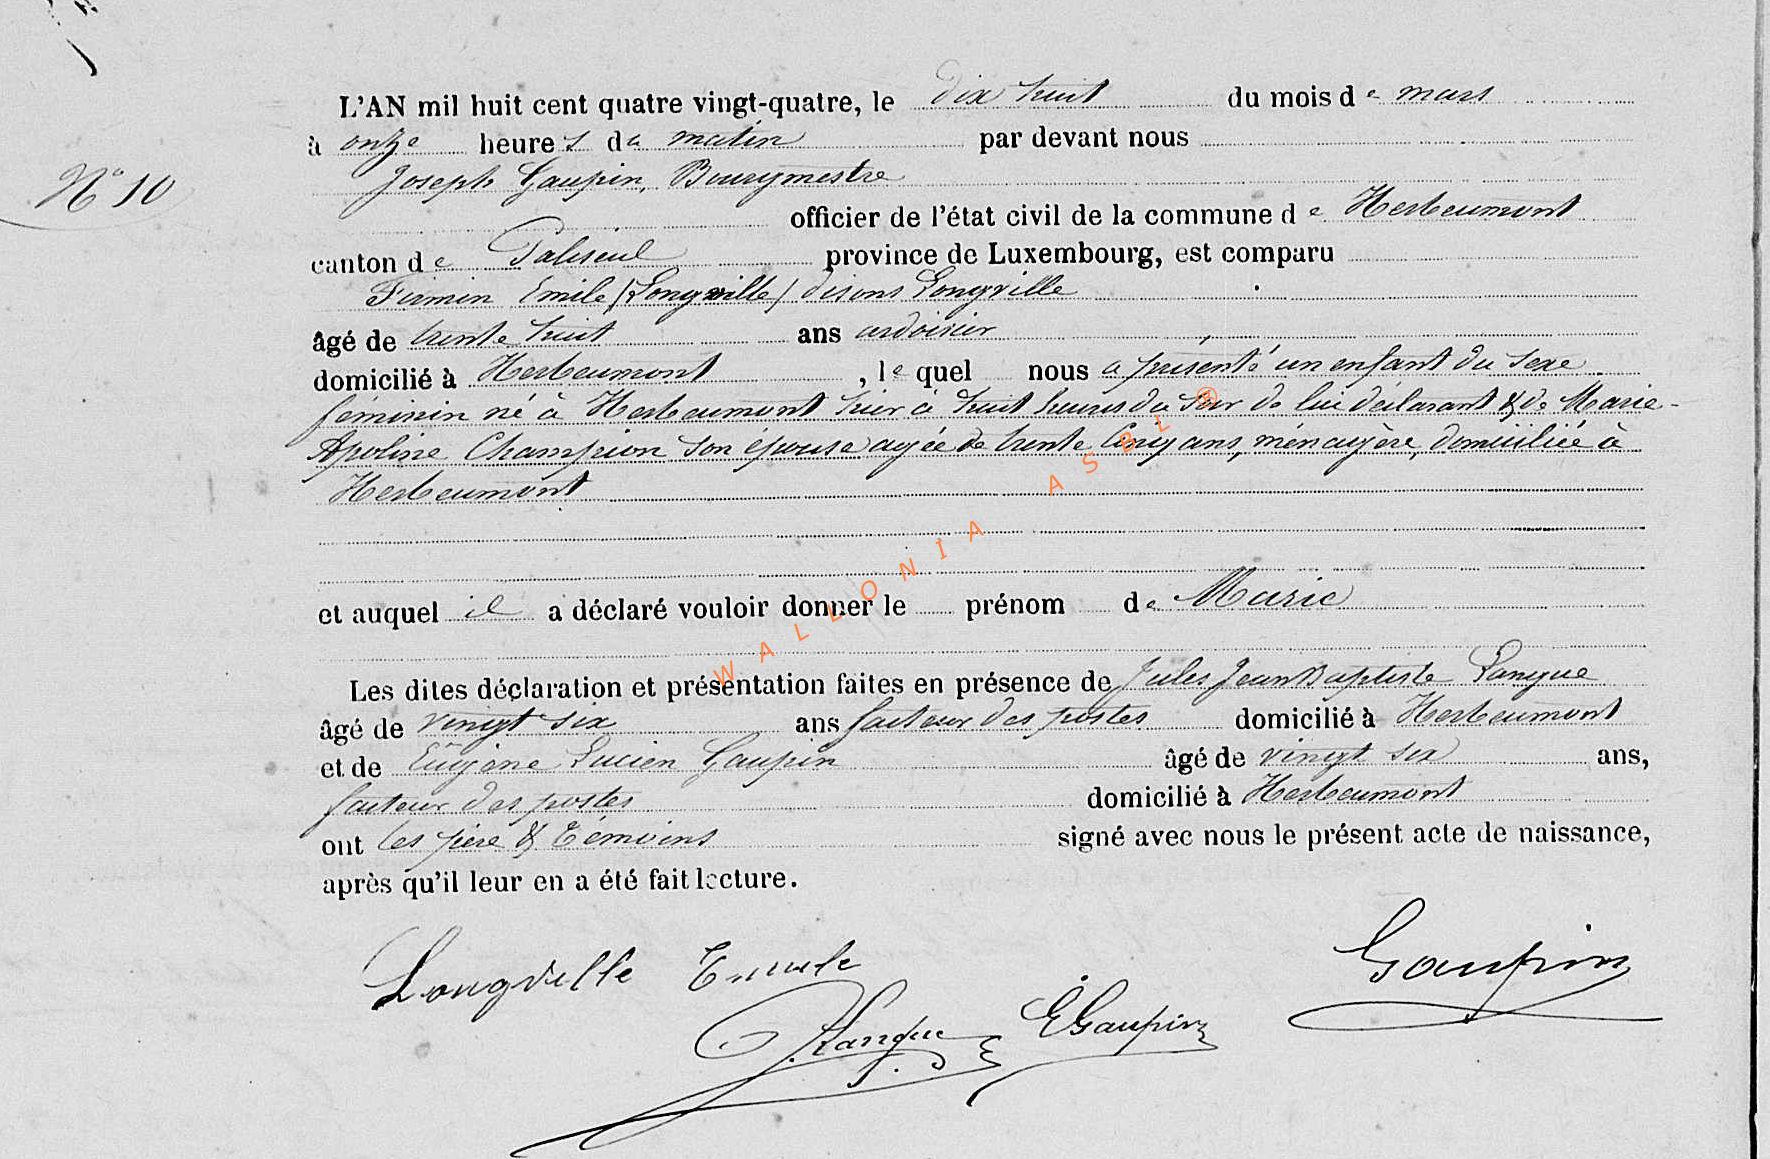 L'AN mil huit cent quatre vingt-quatre, le dix huit du mois de mars
à onze heures du matin par devant nous
N° 10
Joseph Gaupin, Bourgmestre
officier de l'état civil de la commune de Herbeumont
canton de Paliseul province de Luxembourg, est comparu
Firmin Emile (Longville) disons Longville
âgé de trente huit ans ardoisier
domicilié à Herbeumont, lequel nous a présenté un enfant du sexe
féminin né à Herbeumont hier à huit heures du soir de lui déclarant & de Marie-
Apoline Champion son épouse agée de trente cinq ans, ménagère, domiciliée à
Herbeumont
et auquel il a déclaré vouloir donner le prénom de Marie
Les dites déclaration et présentation faites en présence de Jules Jean Baptiste Langue
âgé de vingt six ans facteur des postes domicilié à Herbeumont
et de Eugène Lucien Gaupin âgé de vingt six ans,
facteur des postes domicilié à Herbeumont
ont les père & témoins signé avec nous le présent acte de naissance,
après qu'il leur en a été fait lecture.
Longville Emile
Gaupin
Langue
EGaupin
WALLONIA ASBL ®